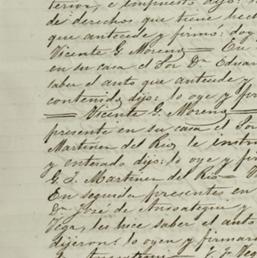 terior, e impuesto dijo:
de derechos que tiene hech
que antecede y firmo: doy
Vicente G. Moreno — En
en su casa el Sor Dn Eduar
saber el auto que antecede y
contenido, dijo: lo oye y fir
— Vicente G. Moreno —
presente en su casa el Sor
Martinez del Rio, le instru
y enterado dijo: lo oye y fir
G. I. Martinez del Rio —
En seguida presentes en
Dn José de Ansoategui y
Vega, les hice saber el auto
dijeron: lo oyen y firmaro
Vega